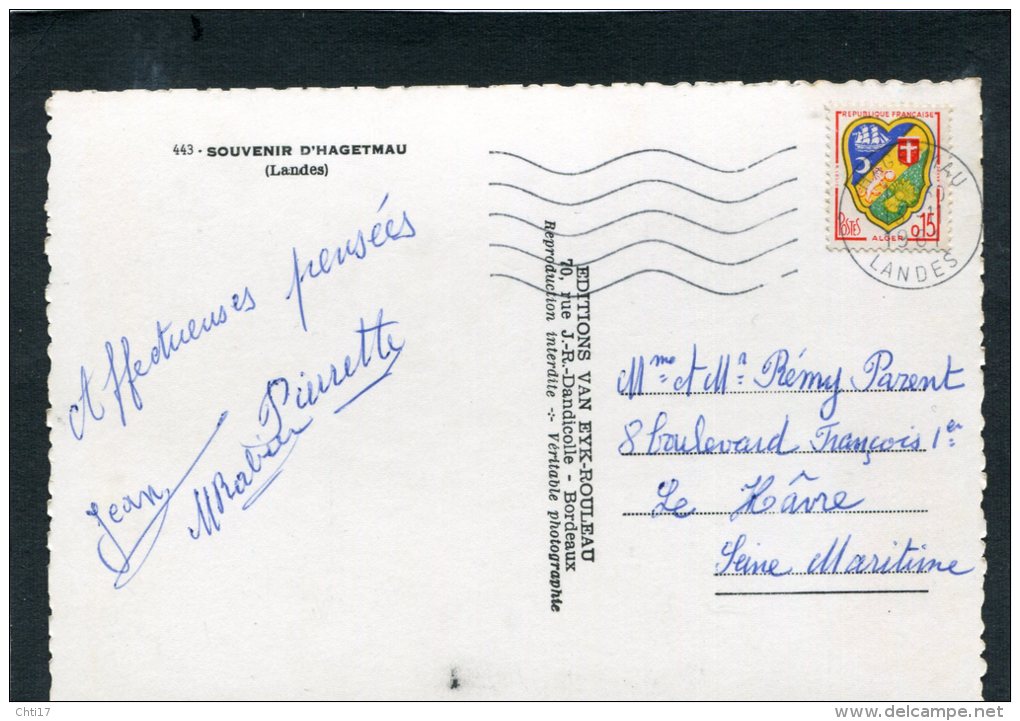 443 - SOUVENIR D'HAGETMAU
(Landes)
Affectueuses pensées
Pierrette
Jean
EDITIONS VAN EYK-ROULEAU
70, rue J.-R.-Dandicolle - Bordeaux
Reproduction interdite -:- Véritable photographie
REPUBLIQUE FRANÇAISE
POSTES
ALGER
0,15
HAGETMAU
LANDES
Mme et Mr Rémy Parent
8 boulevard François 1er
Le Hâvre
Seine Maritime
Chti17
delcampe.net